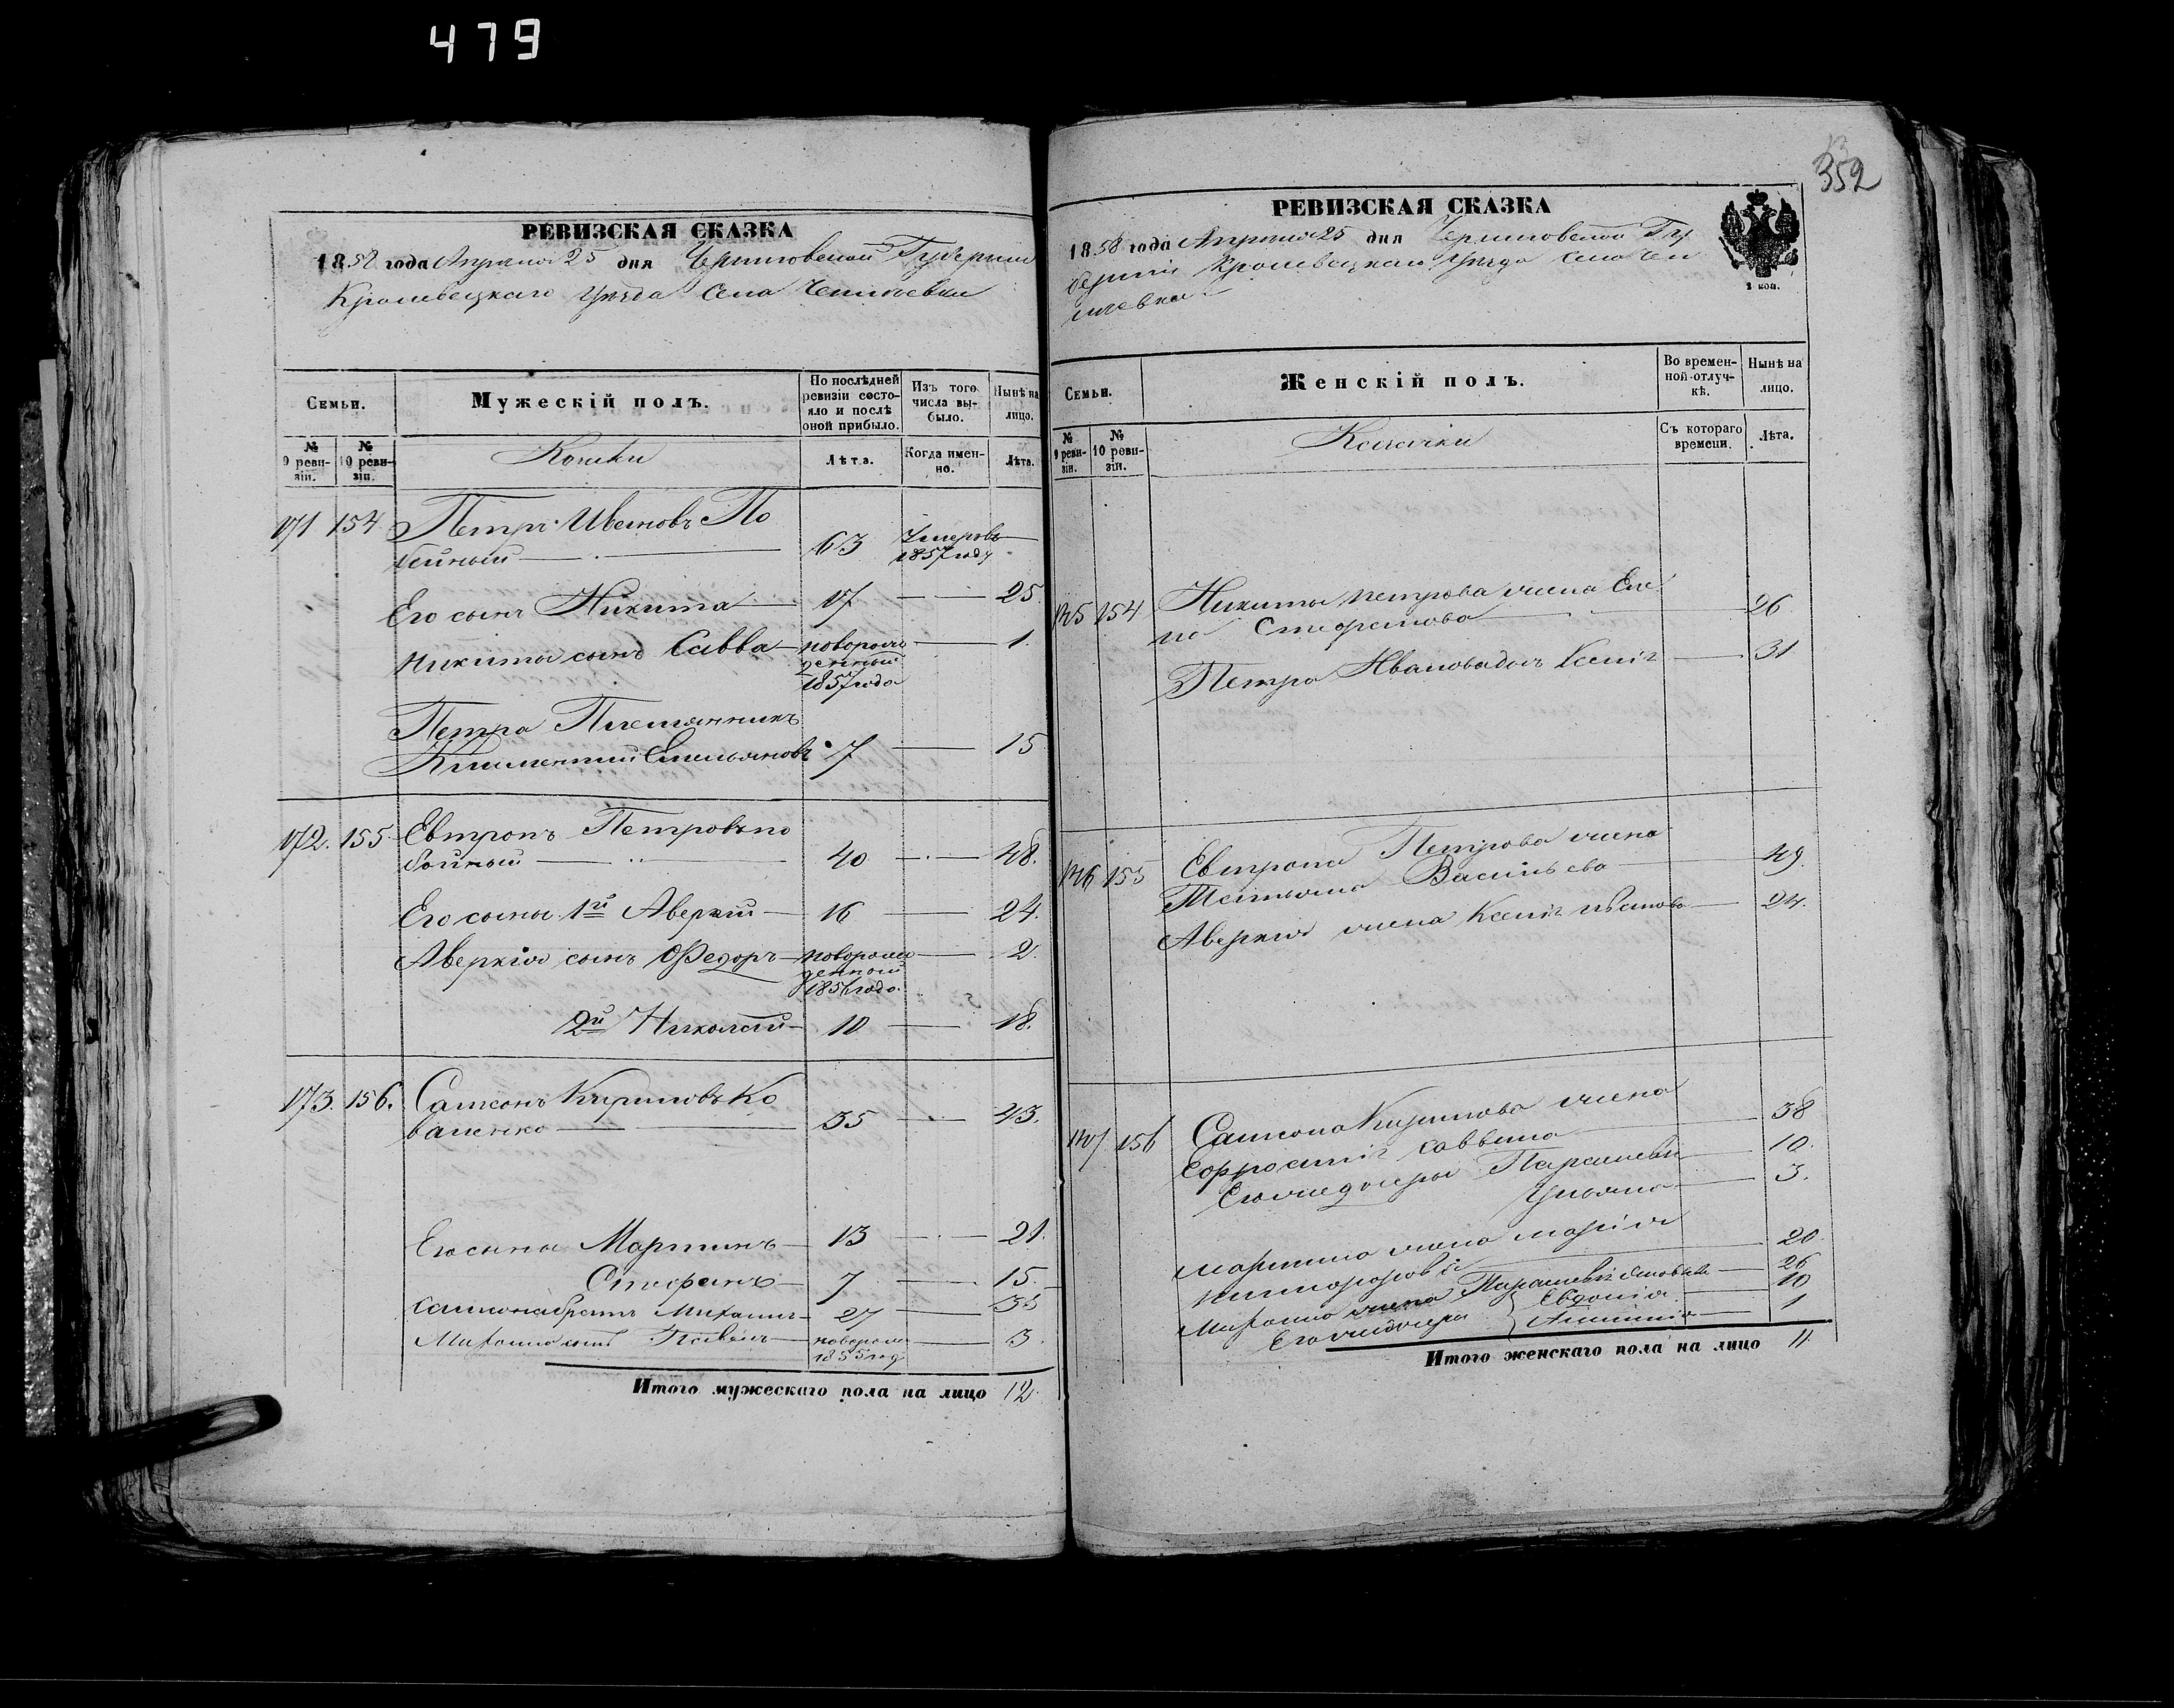 479
352
РЕВИЗСКАЯ СКАЗКА
1858 года Апреля 25 дня Черниговской Губернии
Кролевецкаго Уезда Села
Семьи.
Мужескій полъ.
По послѣдней ревизіи состояло и послѣ оной прибыло.
Изъ того числа выбыло.
Нынѣ на лицо.
№ 9 ревизіи.
№ 10 ревизіи.
Козаки
Лѣта.
Когда именно.
Лѣта.
171 154 Петръ Ивановъ По
63 Умеръ въ 1857 году
Его сынъ Никита 17 25.
Никиты сынъ Савва новорожденный 1857 года 1.
Петра Племянникъ
Климентий Емельяновъ 7 15
172. 155 Евтропъ Петровъ По
бойный 40 48.
Его сыны 1й Аверкій 16 24.
Аверкія сынъ Федоръ новорожденный 1856 года 2.
2й Николай 10 18.
173. 156. Самсонъ Кириловъ Ко
валенко 35 43.
Его сыны Мартинъ 13 21.
Стефанъ 7 15.
Самсона братъ Михаилъ 27 35
Михаила сынъ Павелъ новорож 1855 год 3.
Итого мужескаго пола на лицо 12.
РЕВИЗСКАЯ СКАЗКА
1858 года Апреля 25 дня Черниговской Гу
берніи Кролевецкаго Уезда Села
2 коп.
Семьи.
Женскій полъ.
Во временной отлучкѣ.
Нынѣ на лицо.
№ 9 ревизіи.
№ 10 ревизіи.
Козачки
Съ котораго времени.
Лѣта.
145 154 Никиты Петрова жена Еле
на Стефанова 26
Петра Иванова дочь Ксенія 31
146 155 Евтропа Петрова жена
Татьяна Васильева 49.
Аверкія жена Ксенія Иванова 24.
147 156 Самсона Кирилова жена
Ефросинія Саввина 38
Его же дочери Параскевія 10.
Ульяна 3.
Мартина жена Марія
Никифорова 20
Михаила жена Параскевія 26
Его же дочери Евдокія 10
1
Итого женскаго пола на лицо 11